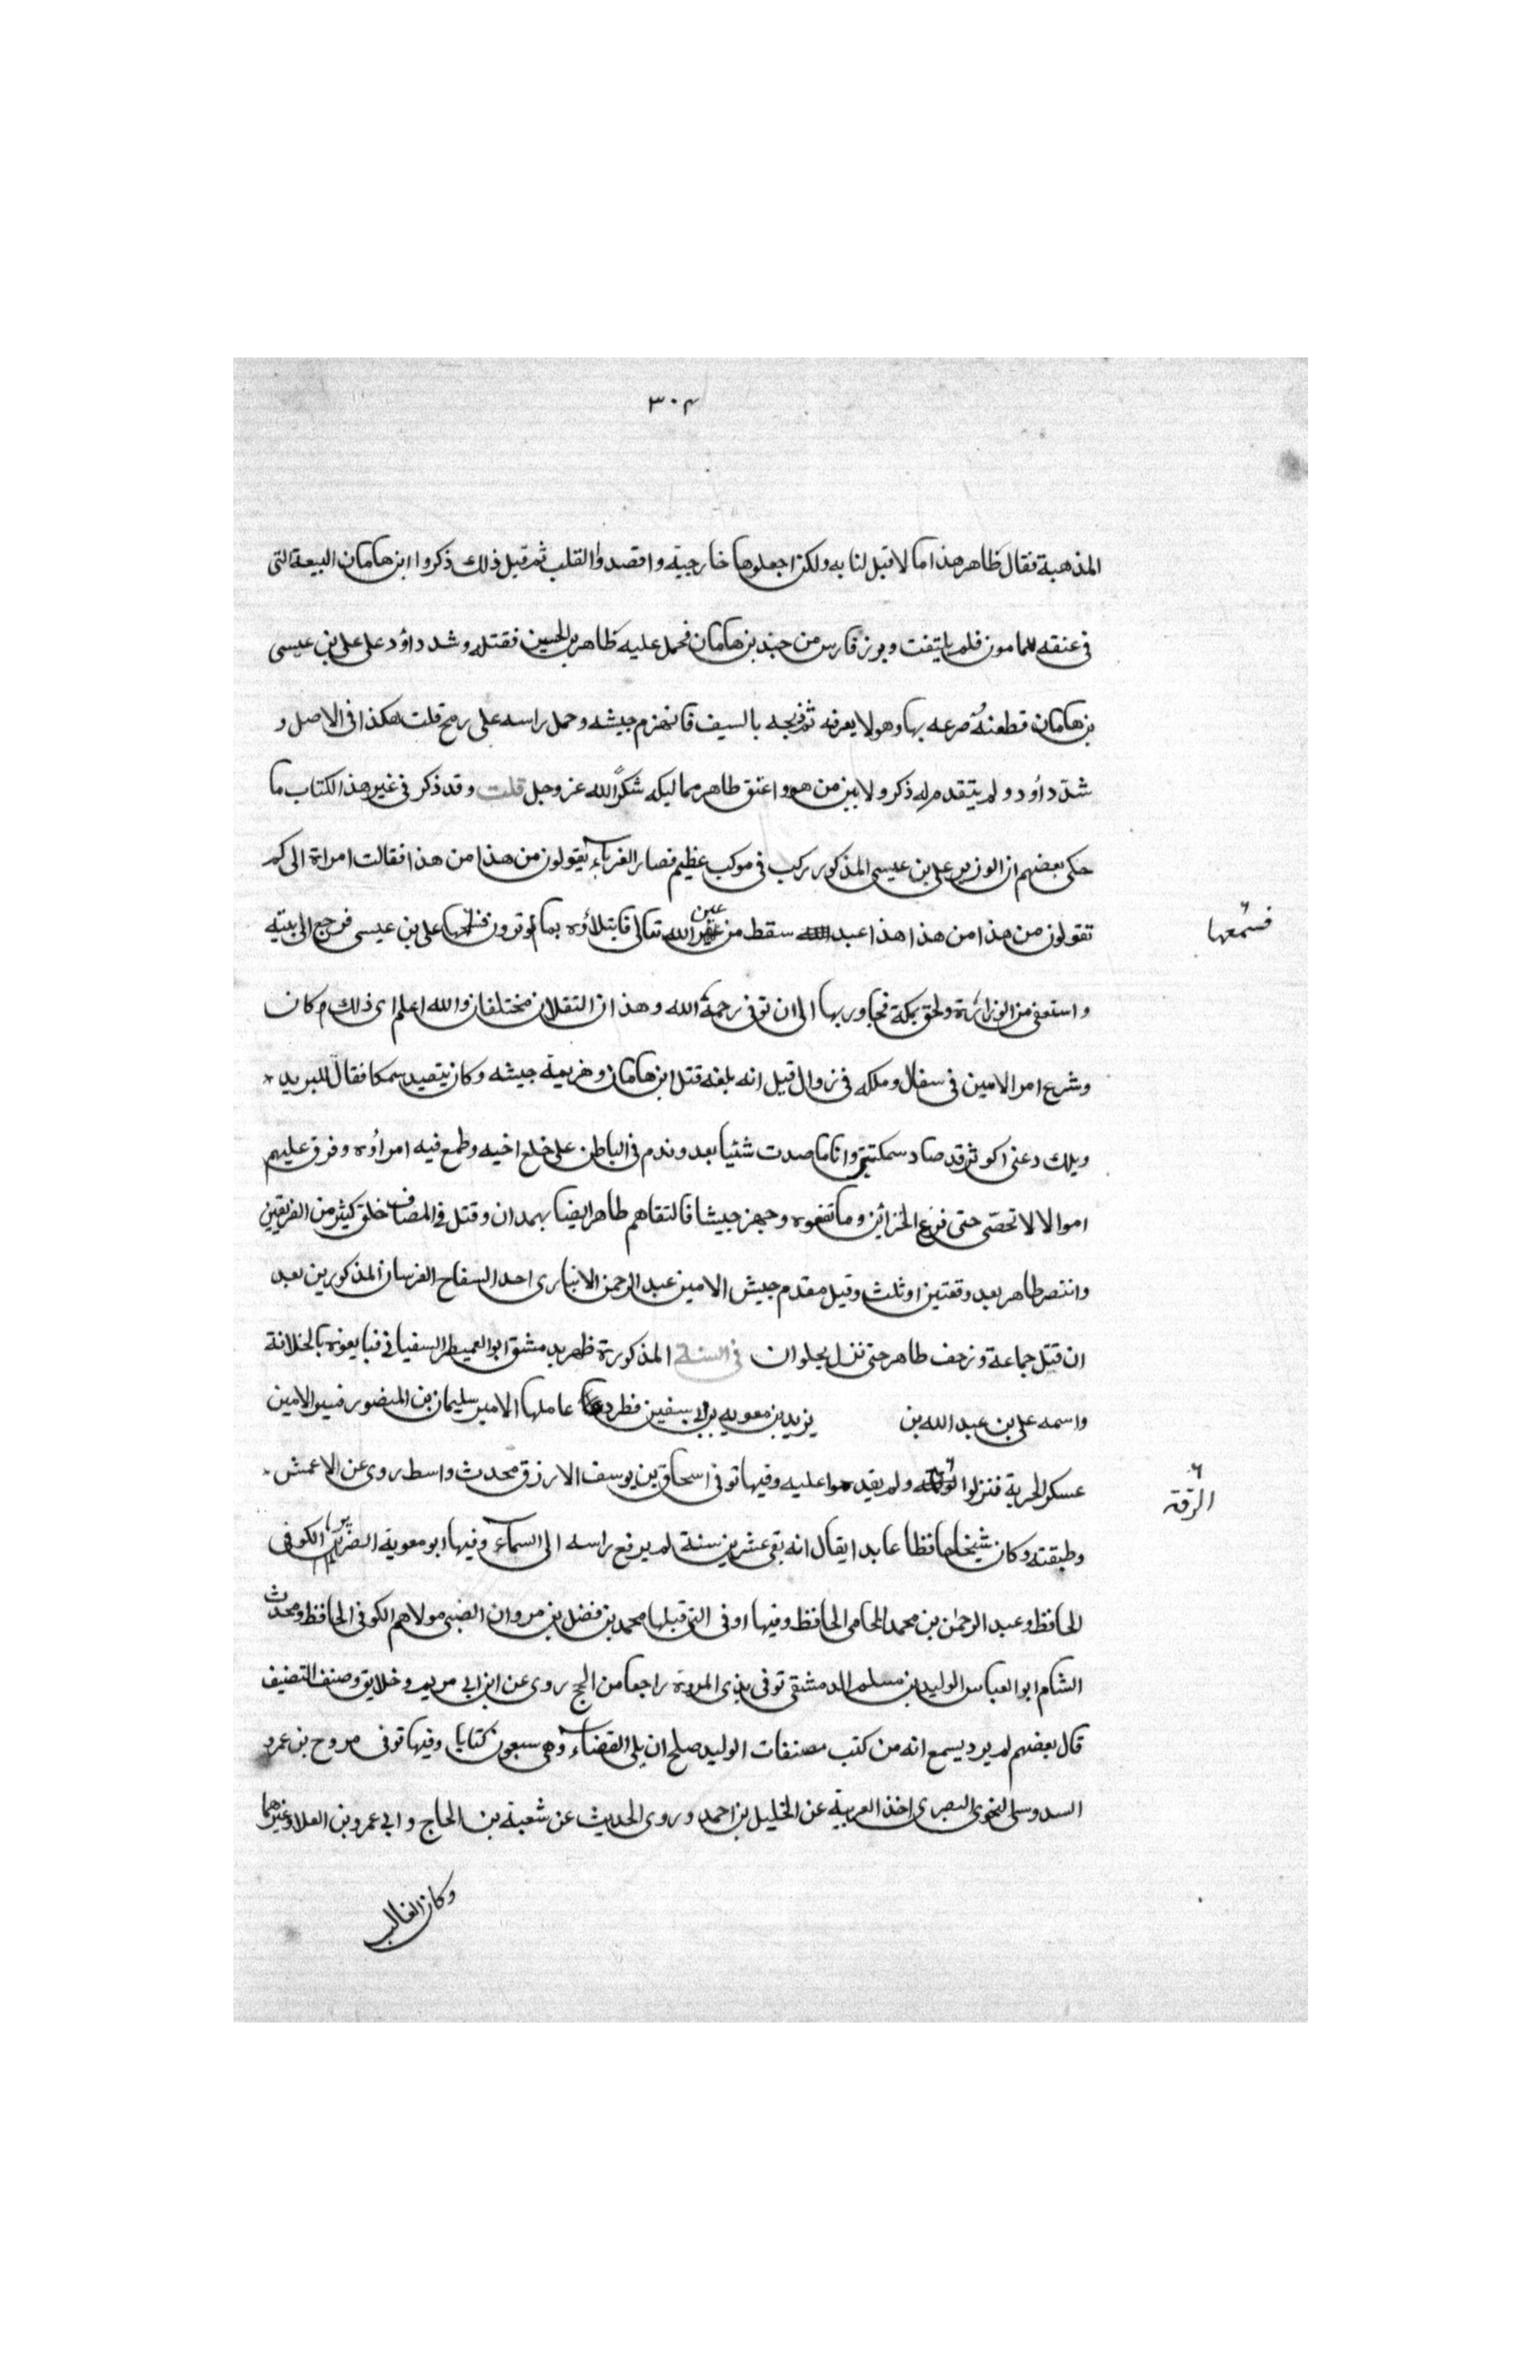 ٣٠٤
المذهبة فقال ظاهر هذا ما لا قبل لنا به ولكن اجعلوها خارجية واقصدوا القلب ثم قيل ذلك ذكروا ابن هامان البيعة التى
فى عنقه للمامون فلم يلتفت وبرز فارس من جند بن هامان فحمل عليه ظاهر بن الحسين فقتله وشد داؤد على على بن عيسى
بن هامان فطعنه صرعه بها وهو لا يعرفه ثم ذبحه بالسيف فانهزم جيشه وحمل راسه على رمح قلت هكذا فى الاصل و
شد داؤد ولم يتقدم له ذكر ولا بين من هو واعتق طاهر مماليكه شكرًا لله عز وجل قلت وقد ذكر فى غير هذا الكتاب ما
حكى بعضهم ان الوزير على بن عيسى المذكور ركب فى موكب عظيم فصار الغرباء يقولون من هذا من هذا فقالت امراة الى كم
تقولون من هذا من هذا هذا عبد سقط من عين الله تعالى فابتلاؤه بما ترون فسمعها على بن عيسى فرجع الى بيته
فسمعها
واستعفى من الوزارة ولحق بمكة فجاور بها الى ان توفى رحمة الله وهذا ان النقلان مختلفان والله اعلم اى ذلك كان
وشرع امر الامين فى سفال وملكه فى زوال قيل انه بلغه قتل ابن هامان وهزيمة جيشه وكان يتصيد سمكا فقال للبريد
ويلك دعنى اكوثر قد صاد سمكتين وانا ما صدت شئيا بعد وندم فى الباطن على خلع اخيه وطمع فيه امراؤه وفرق عليهم
اموالا لا تحصى حتى فرغ الخزائن وما نفعوه وجهز جيشا فالتقاهم طاهر ايضا بهمدان وقتل فى المصاف خلق كثير من الفريقين
وانتصر طاهر بعد وقعتين او ثلث وقيل مقدم جيش الامين عبد الرحمن الانبارى احد السفاح الفرسان المذكورين بعد
ان قتل جماعة وزحف طاهر حتى نزل بحلوان فى السنة المذكورة ظهر بدمشق ابو العميطر السفيانى فبايعوه بالخلافة
واسمه على بن عبد الله بن يزيد بن معويه بن ابى سفين فطرد عاملها الامير سليمان بن المنصور فسير الامين
عسكر الحربة فنزلوا ولم يقدموا عليه وفيها توفى اسحاق بن يوسف الازرق محدث واسط روى عن الاعمش
الرقة
وطبقته وكان شيخا حافظا عابدا يقال انه بقى عشرين سنة لم يرفع راسه الى السماء وفيها ابو معوية الضرير الكوفى
الحافظ وعبد الرحمٰن بن محمد المحامى الحافظ وفيها او فى التى قبلها محمد بن فضل بن مروان الضبى مولاهم الكوفى الحافظ ومحدث
الشام ابو العباس الوليد بن مسلم الدمشقى توفى بذى المروة راجعا من الحج روى عن ابن ابى مريم وخلايق وصنف التصنيف
قال بعضهم لم يرد يسمع انه من كتب مصنفات الوليد صلح ان يلى القضاء وهى سبعون كتابا وفيها توفى مروح بن عمرو
السدوسى النحوى البصرى اخذ العربية عن الخليل بن احمد وروى الحديث عن شعبة بن الحاج وابى عمرو بن العلا وغيرهما
وكان الغالب